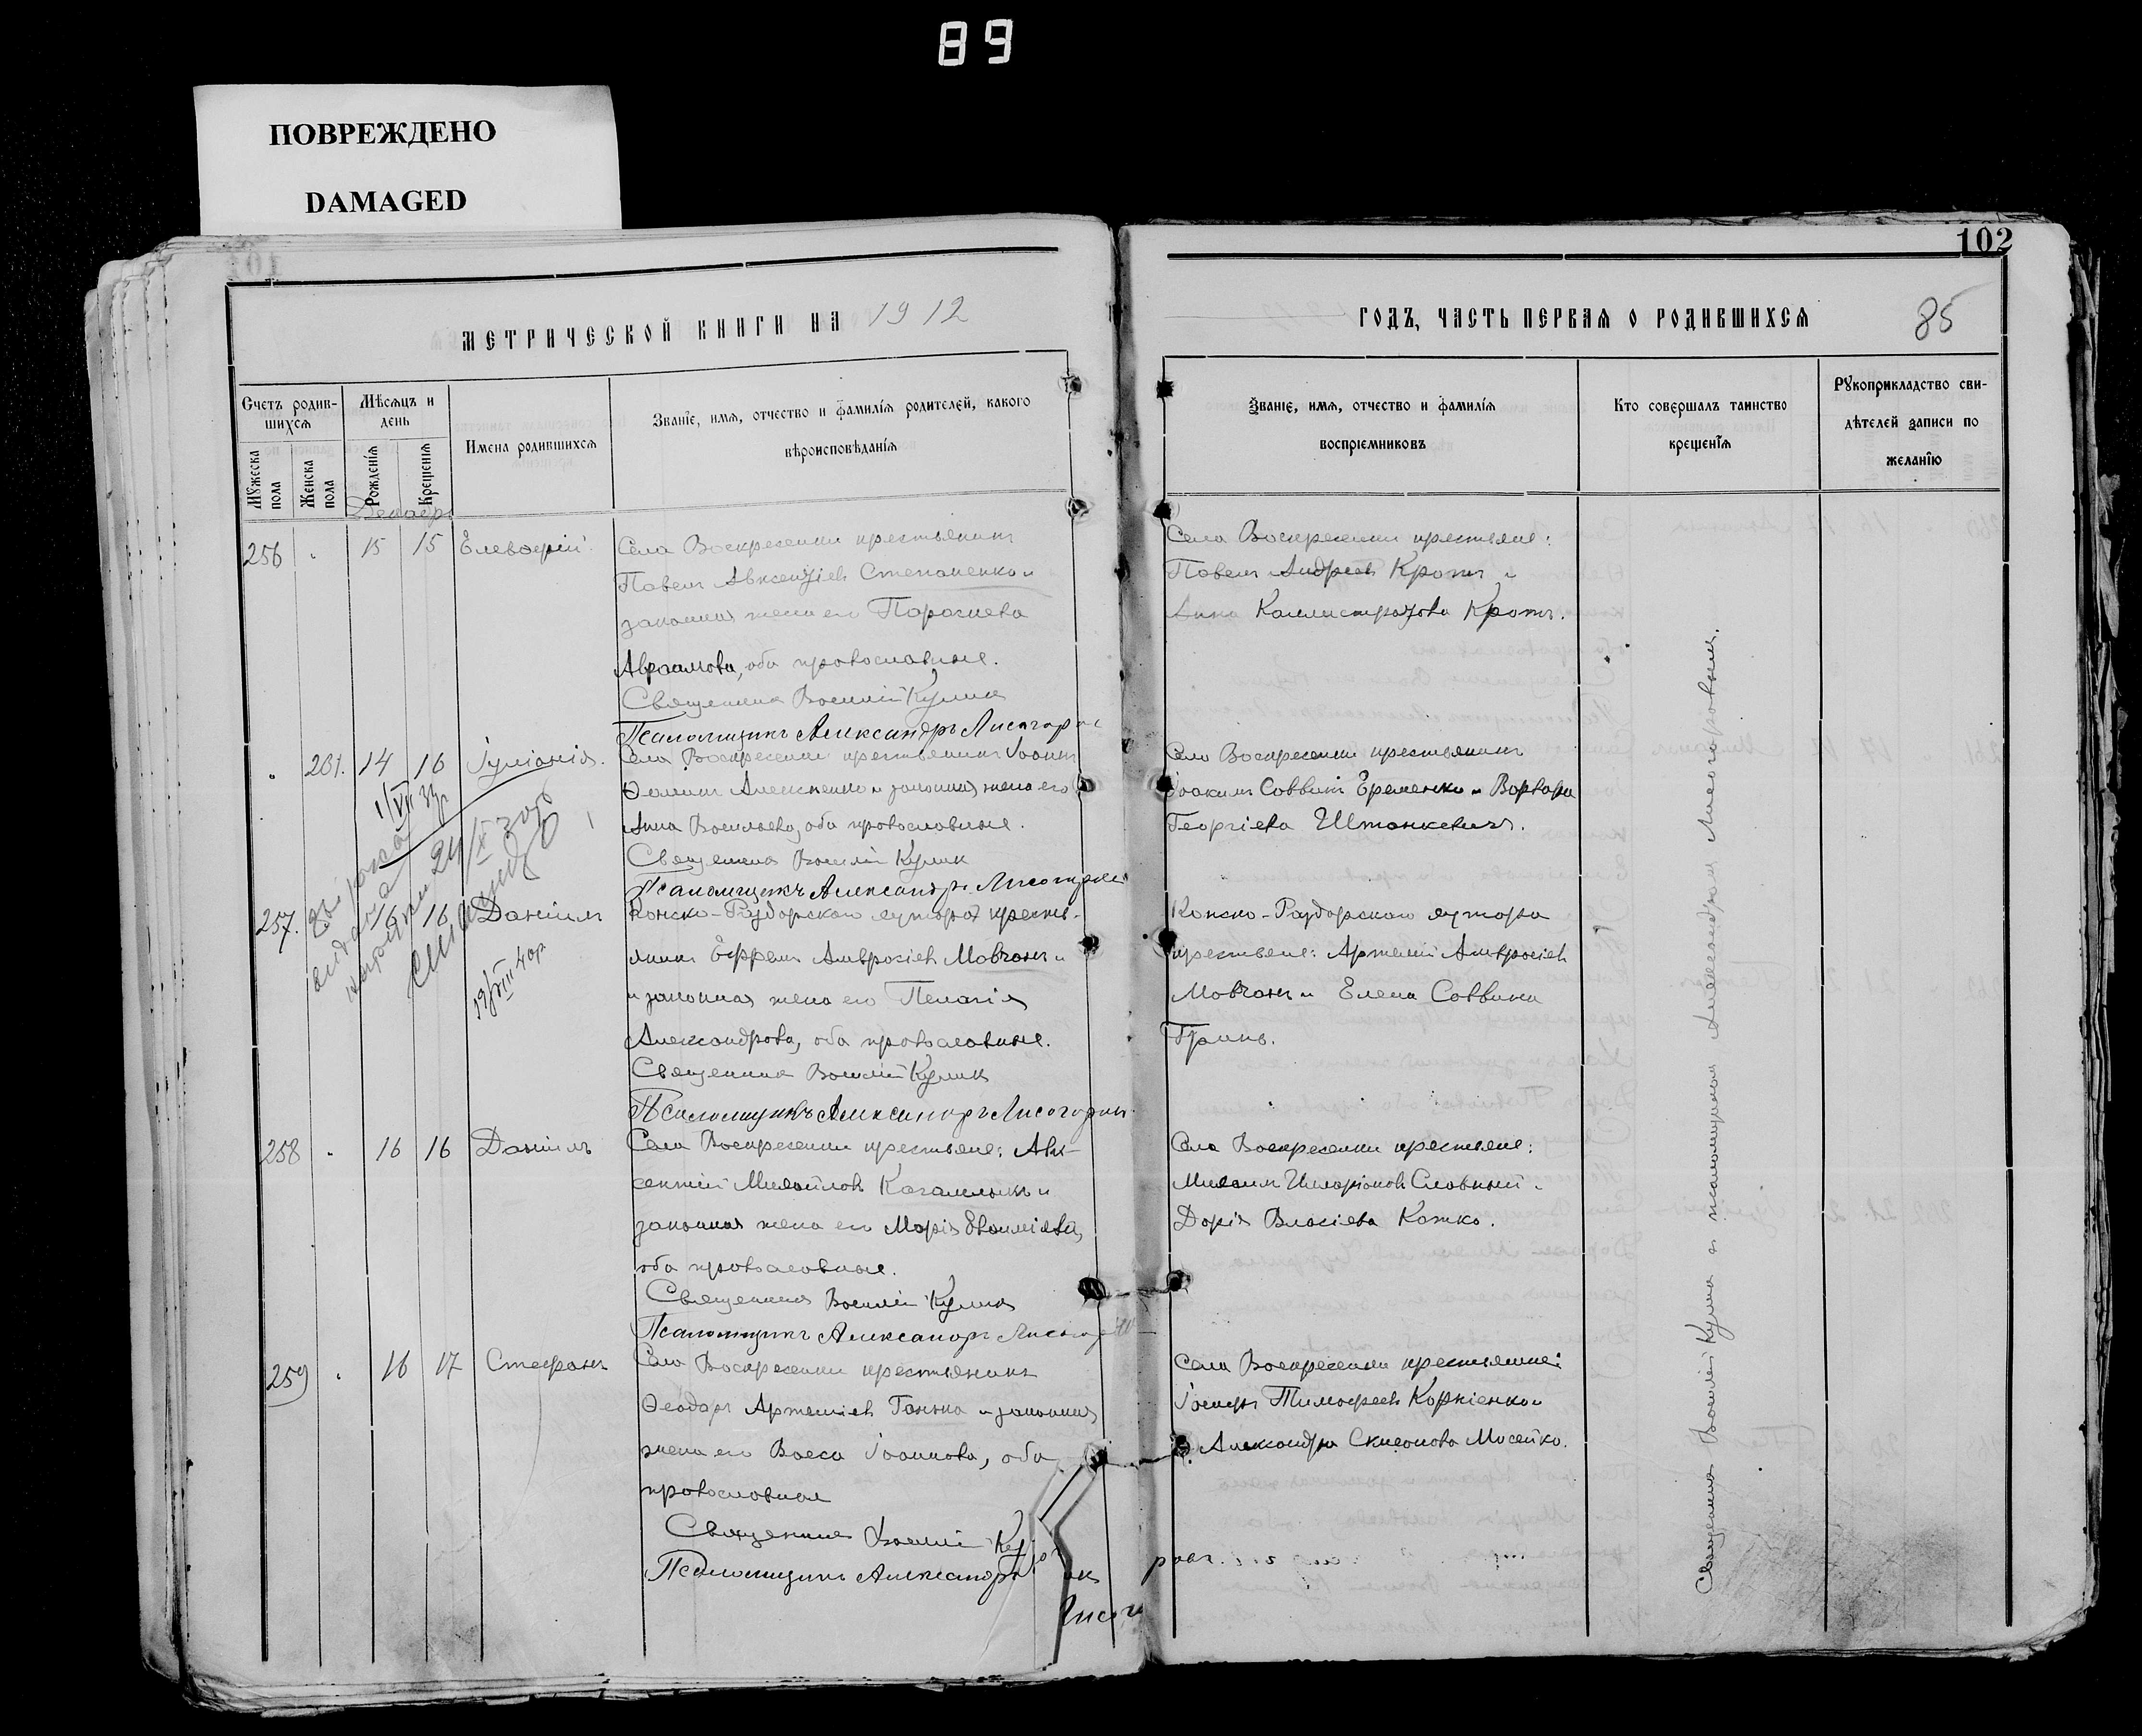 89
ПОВРЕЖДЕНО
DAMAGED
101
МЕТРИЧЕСКОЙ КНИГИ НА 1912
Счетъ родив-
шихся
Мѣсяцъ и
день
Имена родившихся
Званіе, имя, отчество и фамилія родителей, какого
вѣроисповѣданія
Мужеска
пола
Женска
пола
Рожденія
Крещенія
Декабр
256 15 15 Елевѳерій
Села Воскресенки крестьянинъ
Павелъ Авксентіевъ Степаненко и
законная жена его Параскева
Авраамова, оба православные.
Священникъ Василій Куликъ
Псаломщикъ Александръ Лисогор
261. 14 16 Іуліанія.
Села Воскресенки крестьянинъ Іоаннъ
Ѳоминъ Алексеенко и законная жена его
Анна Васильева, оба православные.
Священникъ Василій Куликъ
Псаломщикъ Александръ Лисогор
1/VII 39
выдана
24/X
257. 16 16 Даніилъ
19/VIII 40р
Конско-Раздорского хутора кресть-
янинъ Ефремъ Амвросіевъ Мовчанъ и
и законная жена его Пелагія
Александрова, оба православные.
Священникъ Василій Куликъ
Псаломщикъ Александръ Лисогор
258 16 16 Даніилъ
Села Воскресенки крестьяне: Авк-
сентій Михайловъ Кагамлыкъ и
законная жена его Марія
оба православные.
Священникъ Василій Куликъ
Псаломщикъ Александръ Лисогор
259 16 17 Стефанъ
Села Воскресенки крестьянинъ
Ѳеодоръ Артеміевъ Ганжа и законная
жена его Васса Іоаннова, оба
православные
Священникъ Василій Ку
Псаломщикъ Александръ
102
ГОДЪ, ЧАСТЬ ПЕРВАЯ О РОДИВШИХСЯ
85
Званіе, имя, отчество и фамилія
воспріемниковъ
Кто совершалъ таинство
крещенія
Рукоприкладство сви-
дѣтелей записи по
желанію
Села Воскресенки крестьяне:
Павелъ Андреевъ Кротъ и
Анна Каллистратова Кротъ.
Села Воскресенки крестьянинъ
Іоакимъ Саввинъ Еременко и Варвара
Георгіева Штанкевичъ.
Конско-Раздорского хутора
крестьяне: Артемій Амвросіевъ
Мовчанъ и Елена Саввина
Села Воскресенки крестьяне:
Михаилъ Иларіоновъ Славный и
Дарія Власіева Кажко.
Села Воскресенки крестьяне:
Іосифъ Тимофеевъ Корніенко и
Александра Мосейко.
Священникъ Василій Куликъ и псаломщикъ Александръ Лисогоровъ.